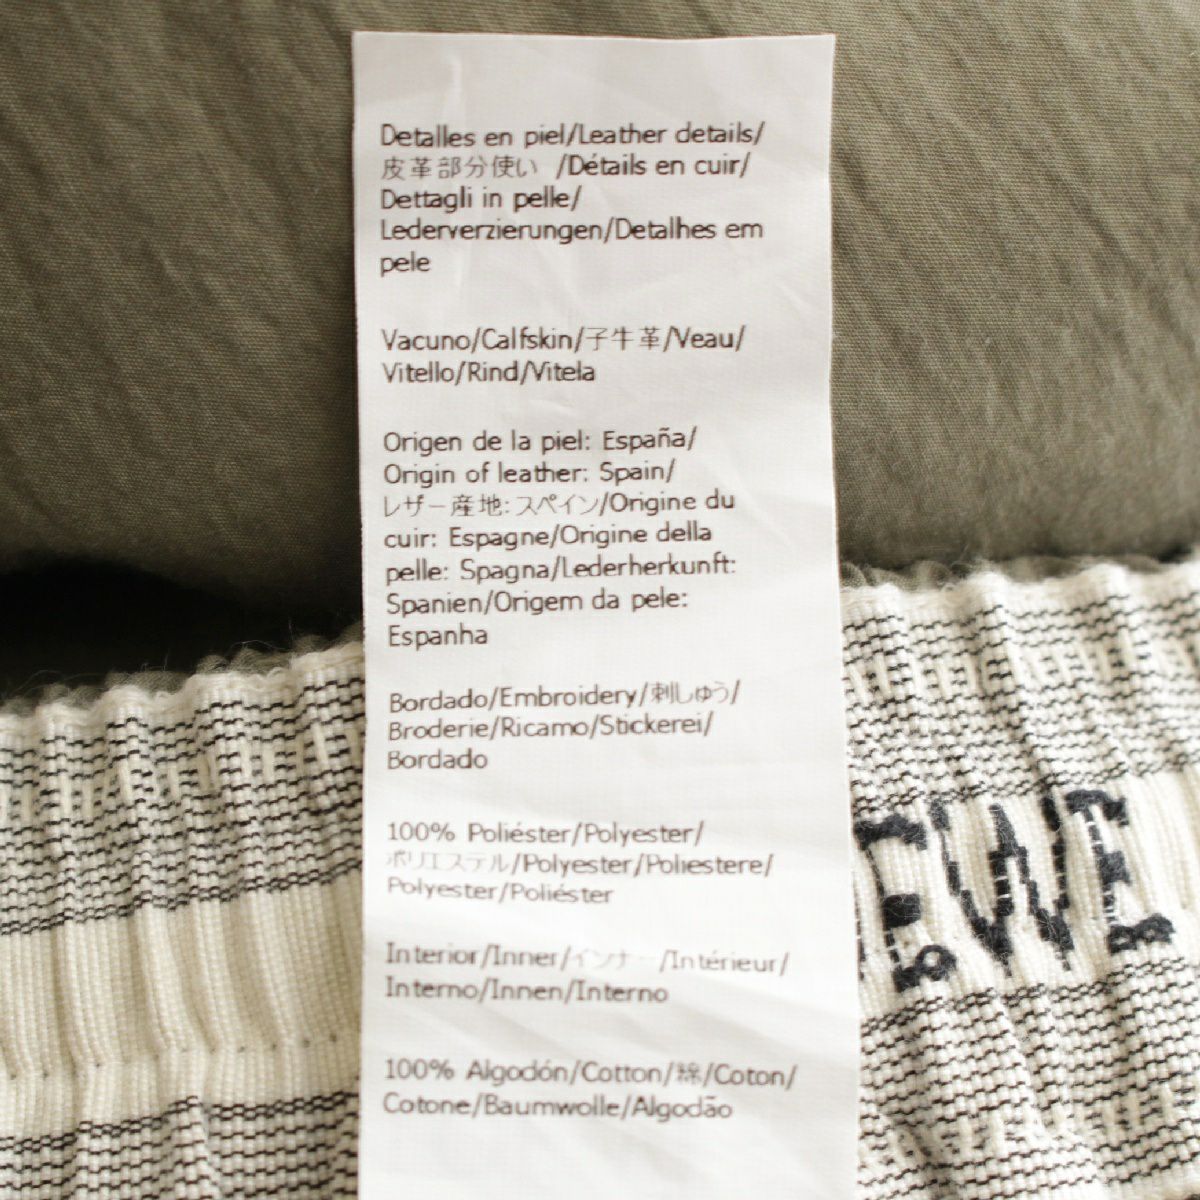 Detalles en piel/Leather details/
皮革部分使い /Détails en cuir/
Dettagli in pelle/
Lederverzierungen/Detalhes em
pele
Vacuno/Calfskin/子牛革/Veau/
Vitello/Rind/Vitela
Origen de la piel: España/
Origin of leather: Spain/
レザー産地:スペイン/Origine du
cuir: Espagne/Origine della
pelle: Spagna/Lederherkunft:
Spanien/Origem da pele:
Espanha
Bordado/Embroidery/刺しゅう/
Broderie/Ricamo/Stickerei/
Bordado
100% Poliéster/Polyester/
ポリエステル/Polyester/Poliestere/
Polyester/Poliéster
Interior/Inner/インナー /Intérieur/
Interno/Innen/Interno
100% Algodón/Cotton/綿/Coton/
Cotone/Baumwolle/Algodão
EWE